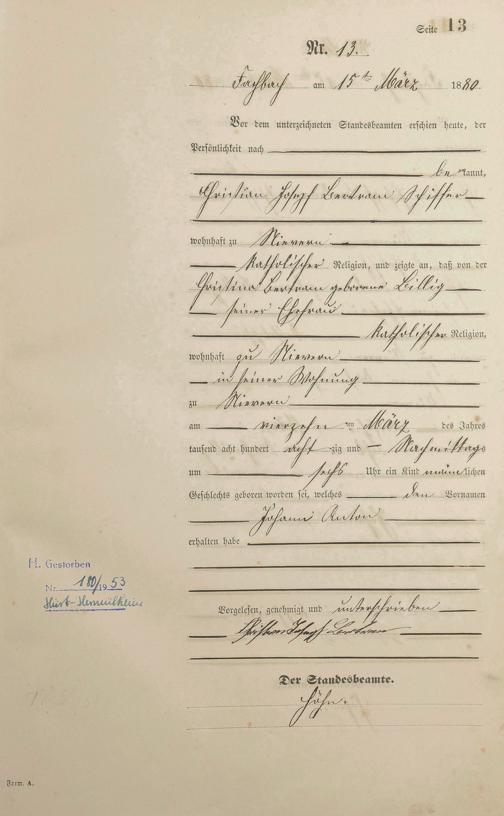 Seite 13
Nr. 13.
Fachbach am 15ten März 1880
Vor dem unterzeichneten Standesbeamten erschien heute, der
Persönlichkeit nach
be kannt,
Christian Josef Bertram Schiffer
wohnhaft zu Nievern
katholischer Religion, und zeigte an, daß von der
Christina Bertram geborene Billig
seiner Ehefrau
katholischer Religion,
wohnhaft zu Nievern
in seiner Wohnung
zu Nievern
am vierzehn ten März des Jahres
tausend acht hundert acht zig und – Nachmittags
um sechs Uhr ein Kind männlichen
Geschlechts geboren worden sei, welches den Vornamen
Johann Anton
erhalten habe
H. Gestorben
Nr. /1953
Vorgelesen, genehmigt und unterschrieben
Christian Josef Bertram
Der Standesbeamte.
Höhn.
Form. A.